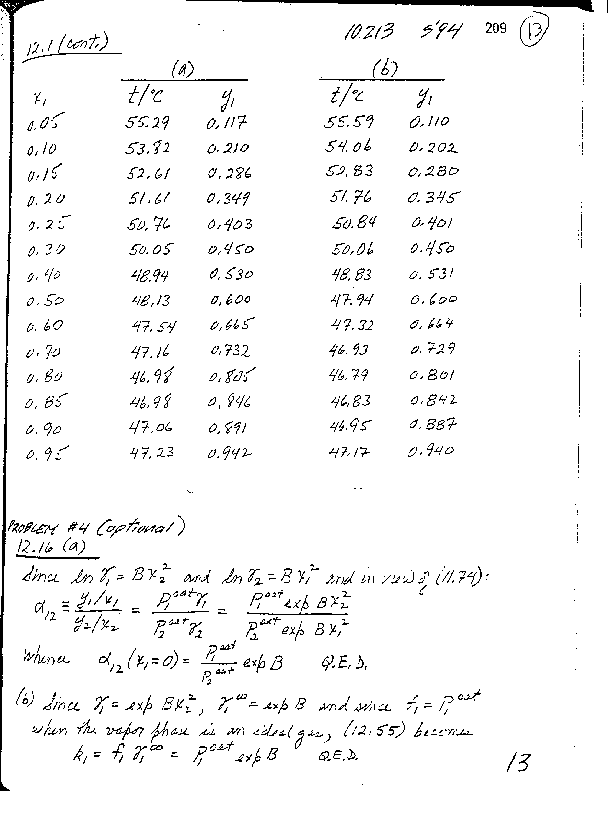 10.213 S'94 209 13
12.1 (cont.)
(a) (b)
x₁ t/°C y₁ t/°C y₁
0.05 55.29 0.117 55.59 0.110
0.10 53.82 0.210 54.06 0.202
0.15 52.61 0.286 52.83 0.280
0.20 51.61 0.349 51.76 0.345
0.25 50.76 0.403 50.84 0.401
0.30 50.05 0.450 50.06 0.450
0.40 48.94 0.530 48.83 0.531
0.50 48.13 0.600 47.94 0.600
0.60 47.54 0.665 47.32 0.664
0.70 47.16 0.732 46.93 0.729
0.80 46.98 0.805 46.79 0.801
0.85 46.98 0.846 46.83 0.842
0.90 47.06 0.891 46.95 0.887
0.95 47.23 0.942 47.17 0.940
PROBLEM #4 (optional)
12.16 (a)
Since ln γ₁ = Bx₂² and ln γ₂ = Bx₁² and in view of (11.74):
α₁₂ ≡ (y₁/x₁)/(y₂/x₂) = P₁ˢᵃᵗγ₁/P₂ˢᵃᵗγ₂ = P₁ˢᵃᵗ exp Bx₂²/P₂ˢᵃᵗ exp Bx₁²
Whence α₁₂ (x₁=0) = P₁ˢᵃᵗ/P₂ˢᵃᵗ exp B Q.E.D.
(b) Since γ₁ = exp Bx₂², γ₁^∞ = exp B and since f₁ = P₁ˢᵃᵗ
when the vapor phase is an ideal gas, (12.55) becomes
k₁ = f₁ γ₁^∞ = P₁ˢᵃᵗ exp B Q.E.D.
13